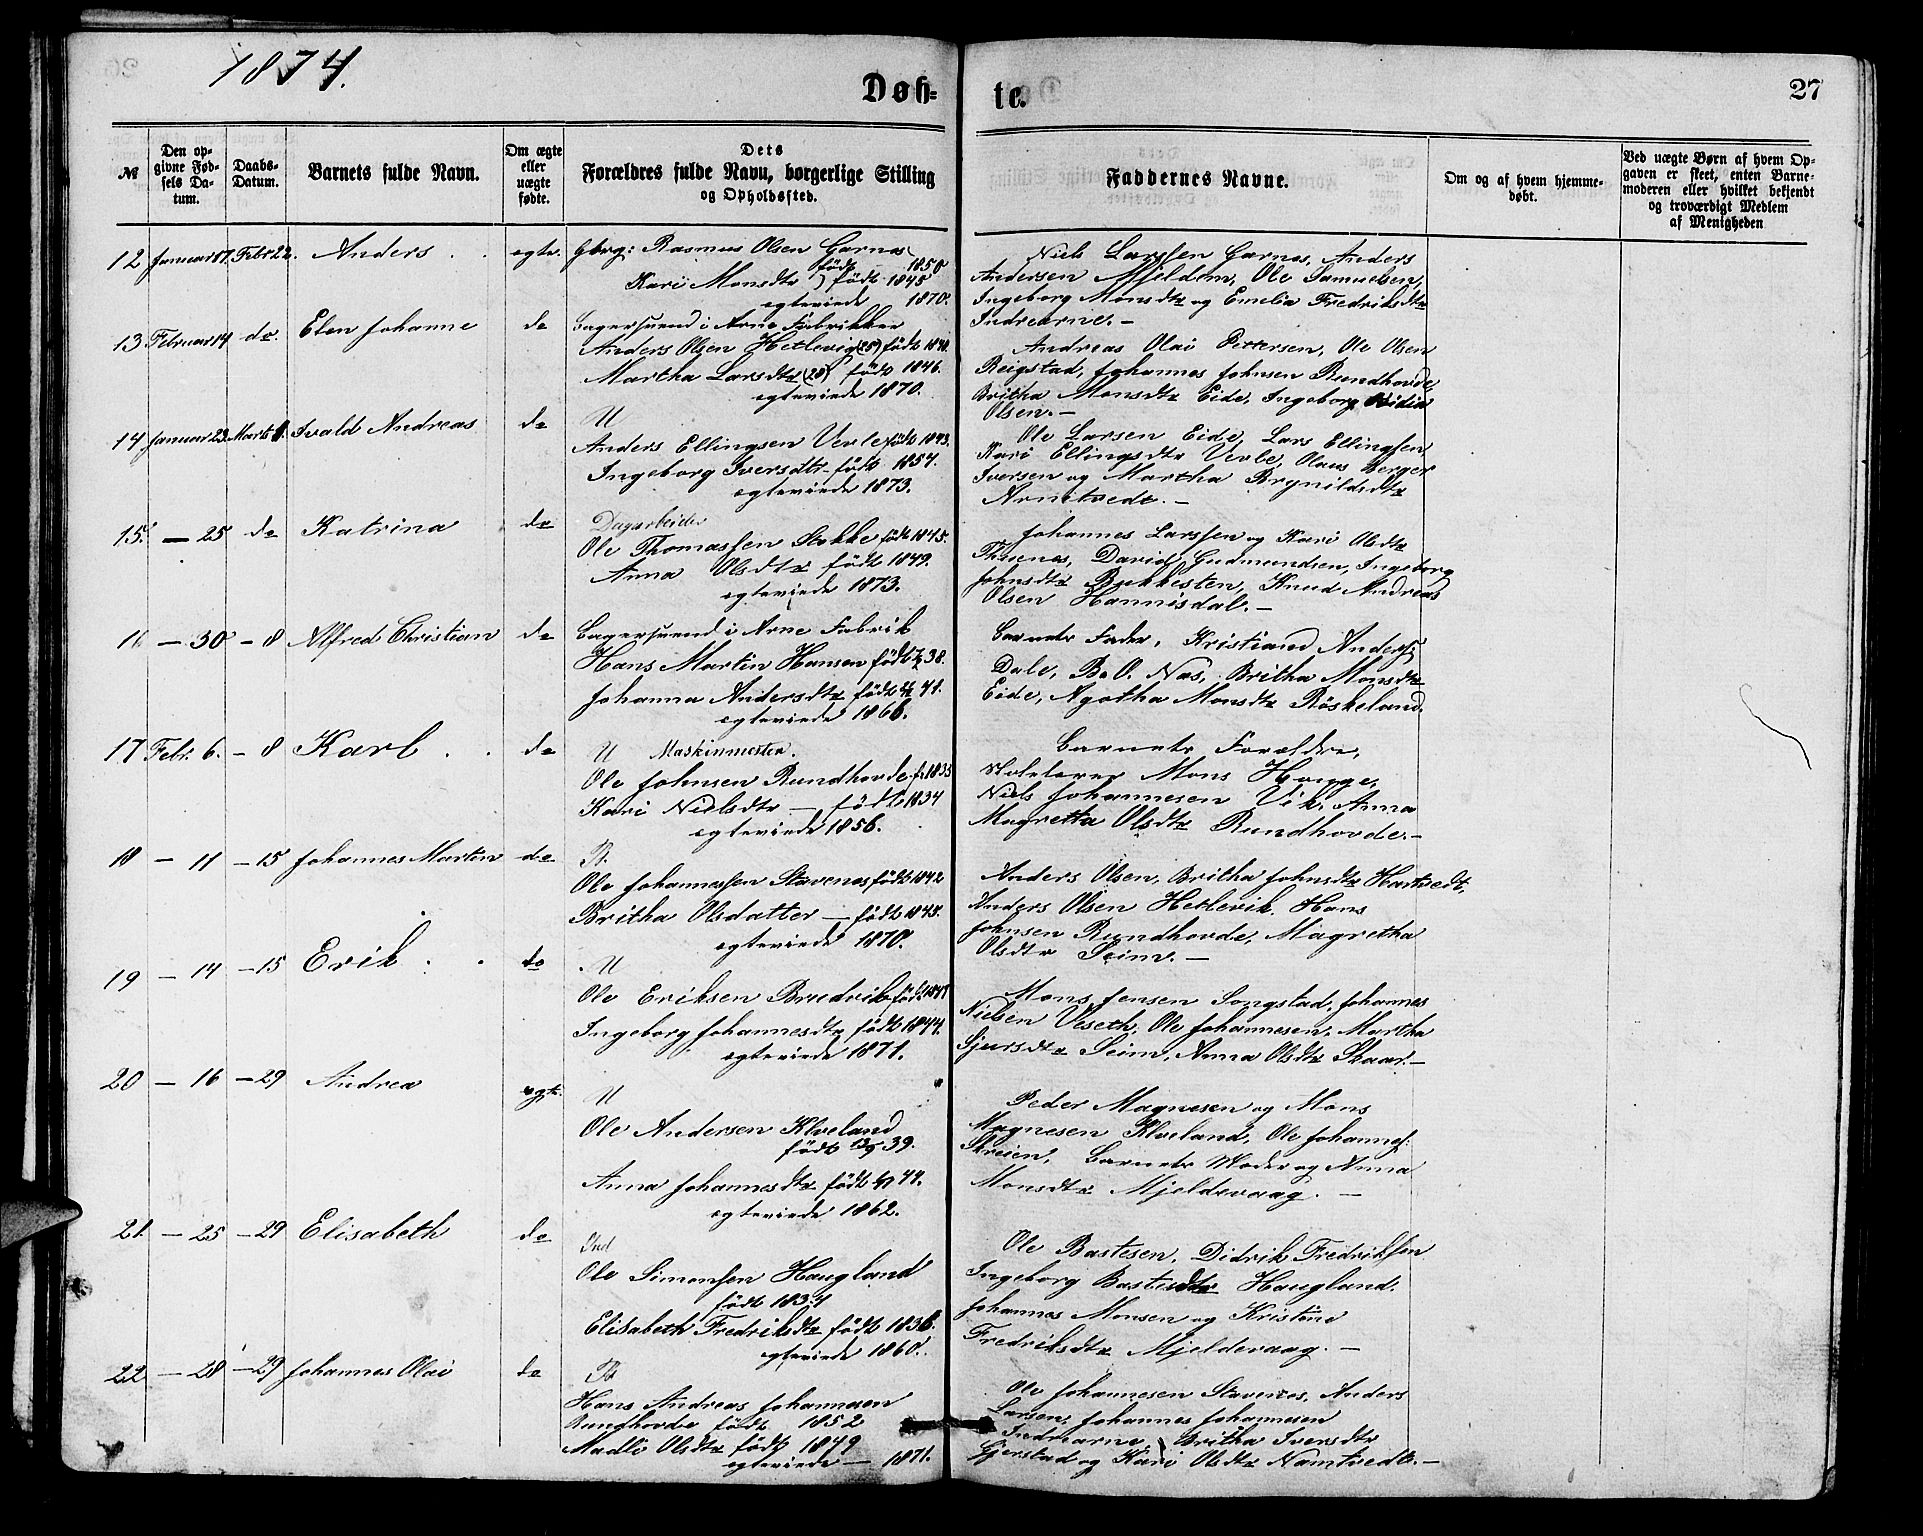 1874.
Døb-
te.
27
№
Den op-
givne Fød-
sels Da-
tum.
Daabs-
Datum.
Barnets fulde Navn.
Om ægte
eller
uægte
fødte.
Dets
Forældres fulde Navn, borgerlige Stilling
og Opholdssted.
Faddernes Navne.
Om og af hvem hjemme-
døbt.
Ved uægte Børn af hvem Op-
gaven er skeet, enten Barne-
moderen eller hvilket bekjendt
og troværdigt Medlem
af Menigheden
12 Januar 17 Febr 22. Anders . . egte. Gbrg: Rasmus Olsen Garnæs
født 1850
Kari Monsdtr født 1845
egteviede 1870.
Niels Larssen Garnæs, Anders
Andersen Mjeldem, Ole Samuelsen,
Ingeborg Monsdtr og Emelia Fredriksdtr
Indrearne.—
13 Februar 14 do. Elen Johanne do
Bagersvend i Arne Fabrikker
Anders Olsen Hetlevig (25) født 1848.
Martha Larsdtr (28) født 1846.
egteviede 1870.
Andreas Olai Pettersen, Ole Olsen
Reigstad, Johannes Johnsen Rundhovde
Britha Monsdtr Eide, Ingeborg
Olsen.—
14 Januar 23 Marts 1. Ivald Andreas do U
Anders Ellingsen Verle født 1843.
Ingeborg Iversdtr født 1854.
egteviede 1873.
Ole Larsen Eide, Lars Ellingsen
Kari Ellingsdtr Verle, Olaus Berger
Iversen og Martha Brynildsdtr
Arnetvedt.—
15. — 25 do Katrina do Dagarbeider
Ole Thomassen Stokke født 1845.
Anna Olsdtr født 1849.
egteviede 1873.
Johannes Larssen og Kari Olsdtr
Thunes, David Gudmundsen, Ingeborg
Johnsdtr Bukkesten, Knud Andreas
Olsen Hannisdal.—
16 — 30 — 8 Alfred Christian do Bagersvend i Arne Fabrik
Hans Martin Hansen født 38.
Johanna Andersdtr født 41.
egteviede 1866.
Barnets Fader, Kristiand Anders:
Dale, B. O. Næs, Britha Monsdtr
Eide, Agotha Monsdtr Röskeland.
17 Febr. 6. — 8 Karl . . do U Maskinmester.
Ole Johnsen Rundhovde f. 1835
Kari Nielsdtr — født 1834
egteviede 1856.
Barnets Forældre,
Skolelærer Mons Hauge,
Niels Johannesen Vik, Anna
Magretta Olsdtr Rundhovde.—
18 — 11 — 15 Johannes Martin do
Ole Johannessen Stavenes født 1842
Britha Olsdatter — født 1845.
egteviede 1870.
Anders Olsen, Britha Johnsdtr Hartvedt,
Anders Olsen Hetlevik, Hans
Johnsen Rundhovde, Magretha
Olsdtr Seim.—
19 — 14 — 15 Erik . . do U
Ole Eriksen Brudvik født 1848
Ingeborg Johannesdtr født 1844.
egteviede 1871.
Mons Jensen Songstad, Johannes
Nielsen Veseth, Ole Johannesen, Martha
Sjursdtr Seim, Anna Olsdtr Skaar.—
20 — 16 — 29 Andrea egte. U
Ole Andersen Kleveland
født 39.
Anna Johannesdtr født 44.
egteviede 1862.
Peder Magnesen og Mons
Magnesen Kleveland, Ole Johannes:
Skreien, Barnets Moder og Anna
Monsdtr Mjeldevaag.—
21. — 25 — 29 Elisabeth do Ind
Ole Simonsen Haugland
født 1834
Elisabeth Fredriksdtr født 1836.
egteviede 1860.
Ole Bastesen, Didrik Fredriksen
Ingeborg Bastesdtr Haugland,
Johannes Monsen og Kristine
Fredriksdtr Mjeldevaag.—
22 — 28 — 29 Johannes Olai do
Hans Andreas Johannesen
Rundhovde født 1852
Madli Olsdtr født 1849
egteviede — 1871.
Ole Johannesen Stavenes, Anders
Larsen, Johannes Johannesen
Indrearne, Britha Iversdtr
Gjerstad og Kari Olsdtr Namtvedt.—